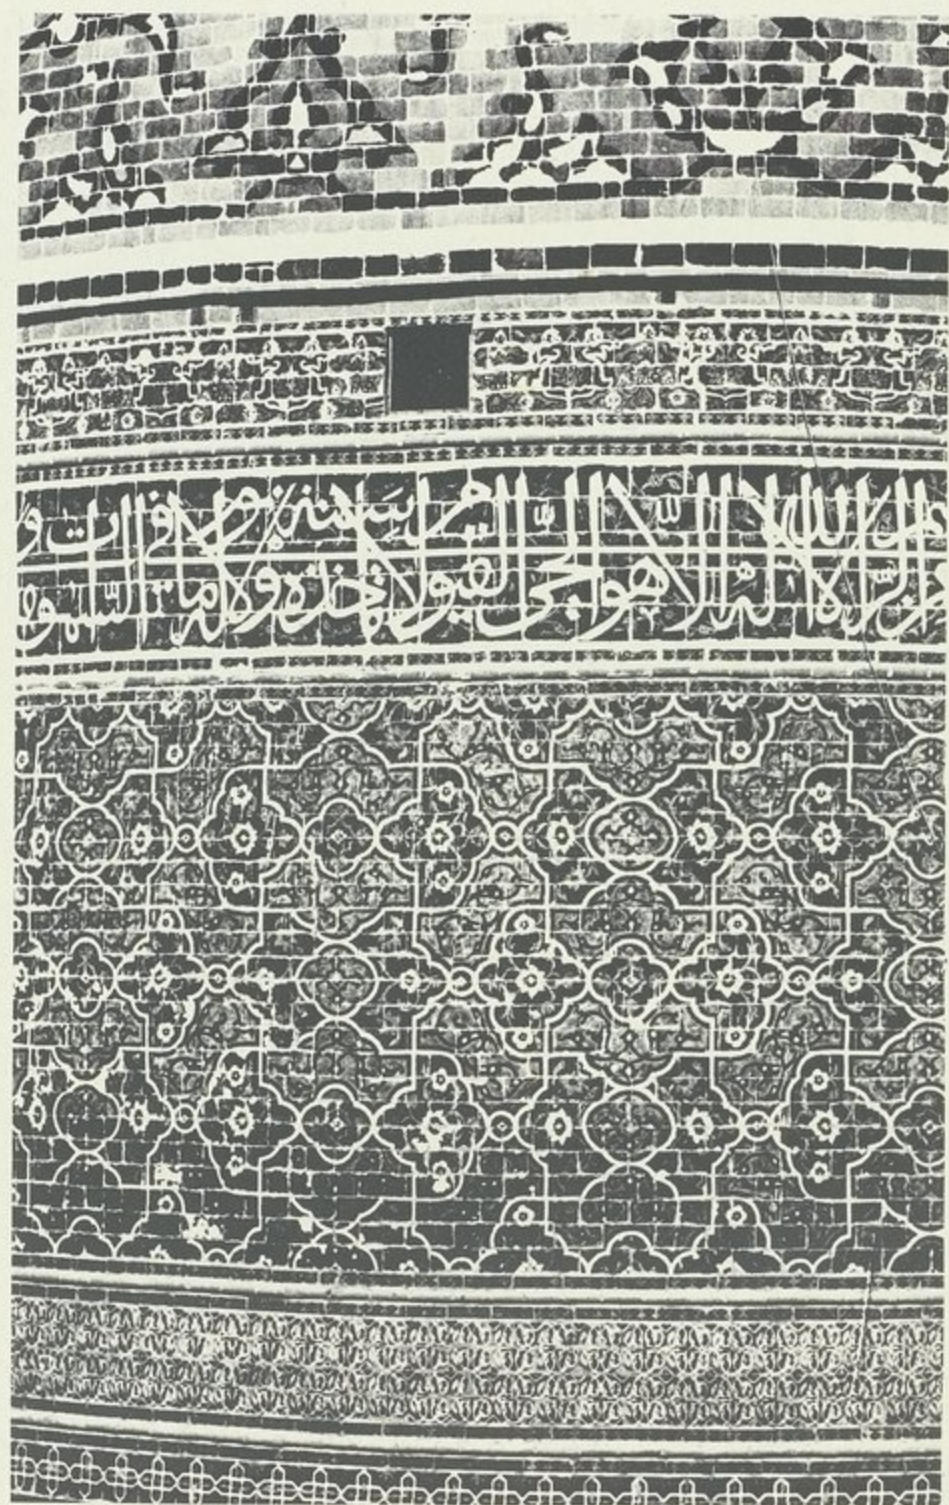 الله لا اله الا هو الحي القيوم لا تاخذه سنة ولا نوم له ما في السموات و